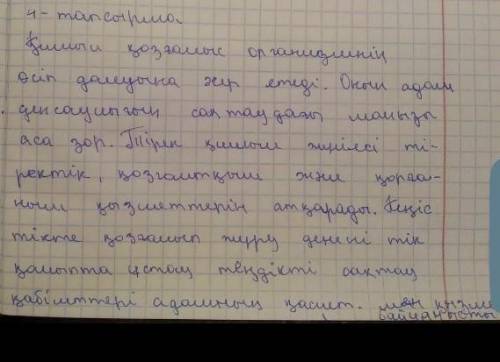 4-тапсырма.
Қимыл қозғалыс организмнің
өсіп дамуына әсер етеді. Оның адам
денсаулығын сақтаудағы маңызы
аса зор. Тірек қимыл жүйесі ті-
ректік, қозғалтқыш және қорға-
ныш қызметтерін атқарады. Кеңіс
тікте қозғалып жүру денені тік
қалыпта ұстау тепдікті сақтау
қабілттері адамның қасиет. мен қызме
байланысты